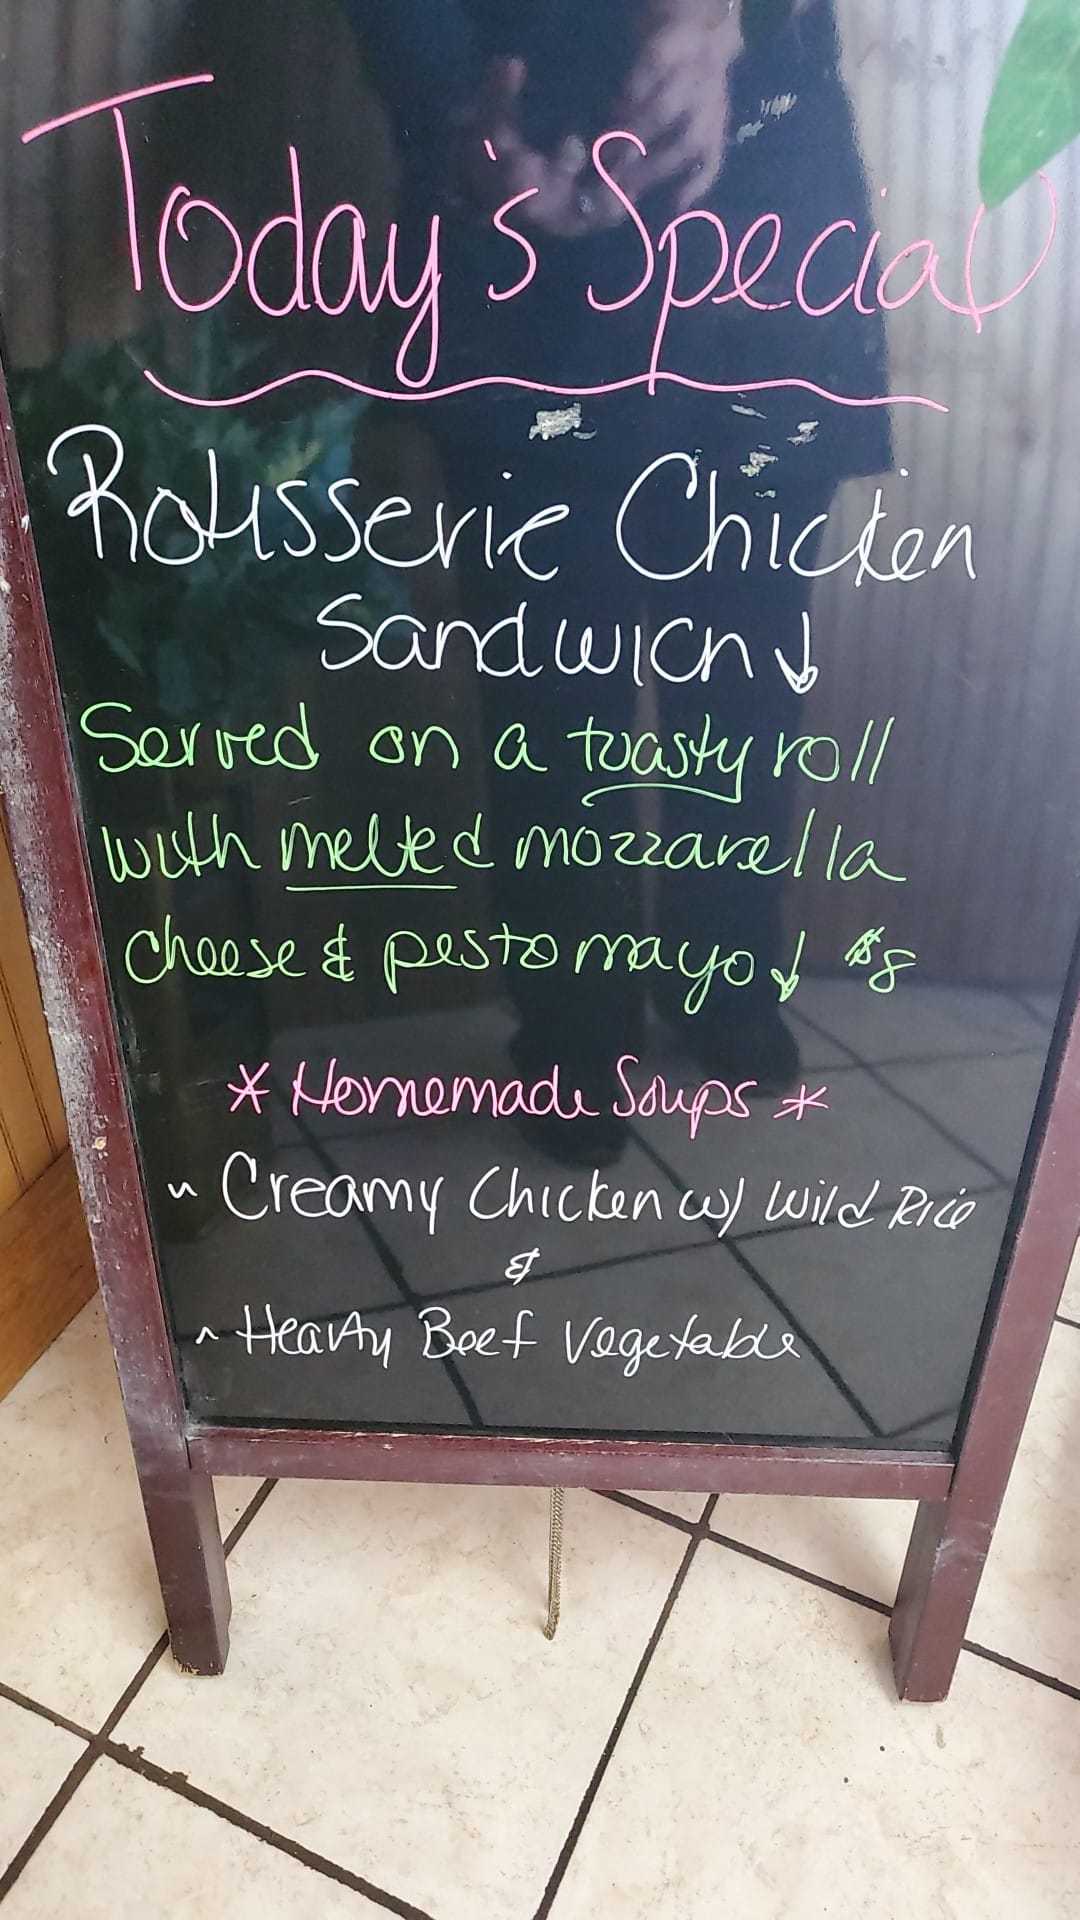 Today's Special
Rotisserie Chicken
Sandwich ↓
Served on a toasty roll
with melted mozzarella
cheese & pesto mayo ↓ $8
* Homemade Soups *
~ Creamy Chicken w/ Wild Rice
&
~ Hearty Beef Vegetable